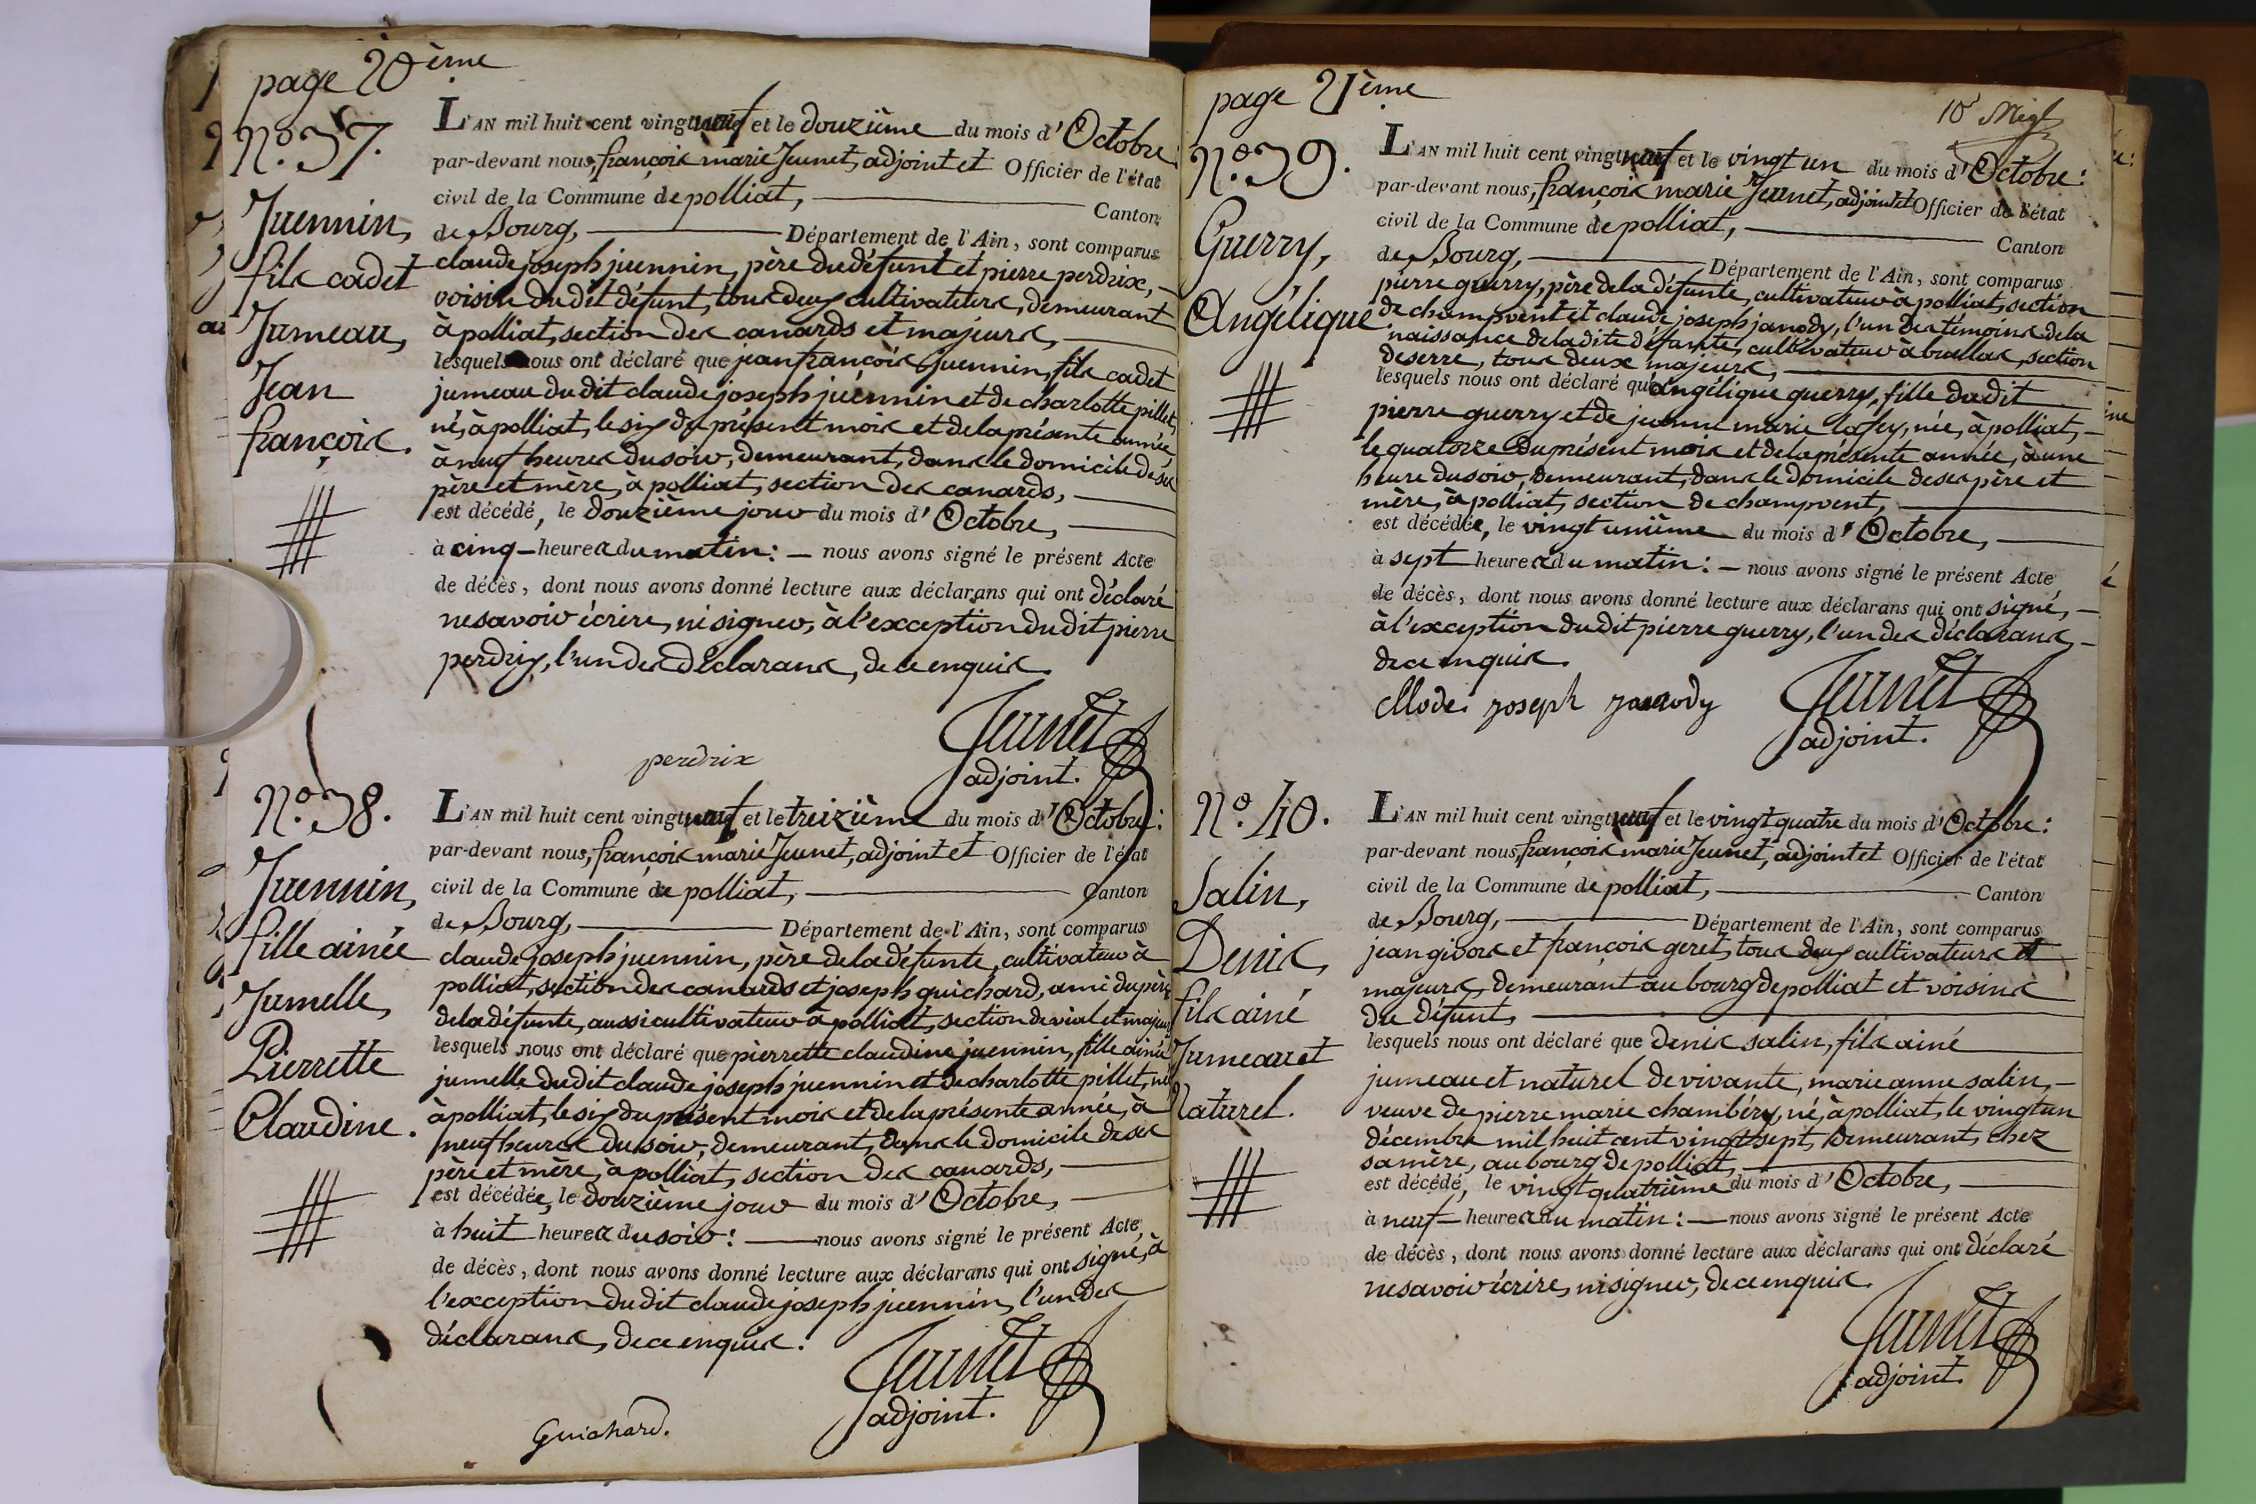 page 20ème
N.º 37.
Juennin,
fils cadet
Jumeau,
Jean
françois.
L'AN mil huit cent vingt neuf et le douzième du mois d'Octobre:
par-devant nous, françois marie Jeunet, adjoint et Officier de l'état
civil de la Commune de polliat, Canton
de Bourg, Département de l'Ain, sont comparus
claude joseph juennin, père du défunt et pierre perdrix,
voisin du dit défunt, tous deux cultivateurs, demeurant
à polliat, section des canards et majeurs,
lesquels nous ont déclaré que jean françois juennin, fils cadet
jumeau du dit claude joseph juennin et de charlotte pillet,
né, à polliat, le six du présent mois et de la présente année,
à neuf heures du soir, demeurant, dans le domicile de ses
père et mère, à polliat, section des canards,
est décédé, le douzième jour du mois d'Octobre,
à cinq heures du matin: nous avons signé le présent Acte
de décès, dont nous avons donné lecture aux déclarans qui ont déclaré
ne savoir écrire, ni signer, à l'exception du dit pierre
perdrix, l'un des déclarans, de ce enquis.
perdrix
Jeunet
adjoint.
N.º 38.
Juennin,
fille ainée
Jumelle,
Pierrette
Claudine.
L'AN mil huit cent vingt neuf et le treizième du mois d'Octobre:
par-devant nous, françois marie Jeunet, adjoint et Officier de l'état
civil de la Commune de polliat, Canton
de Bourg, Département de l'Ain, sont comparus
claude joseph juennin, père de la défunte, cultivateur à
polliat, section des canards et joseph guichard, ami du père
de la défunte, aussi cultivateur à polliat, section de vial et majeurs
lesquels nous ont déclaré que pierrette claudine juennin, fille ainée
jumelle du dit claude joseph juennin et de charlotte pillet, née
à polliat, le six du présent mois et de la présente année, à
neuf heures du soir, demeurant, dans le domicile de ses
père et mère, à polliat, section des canards,
est décédée, le douzième jour du mois d'Octobre,
à huit heures du soir: nous avons signé le présent Acte
de décès, dont nous avons donné lecture aux déclarans qui ont signé, à
l'exception du dit claude joseph juennin, l'un des
déclarans, de ce enquis.
Jeunet
adjoint.
Guichard.
page 21ème
N.º 39.
Guerry,
Angélique
L'AN mil huit cent vingt neuf et le vingt un du mois d'Octobre:
par-devant nous, françois marie Jeunet, adjoint et Officier de l'état
civil de la Commune de polliat, Canton
de Bourg, Département de l'Ain, sont comparus
pierre guerry, père de la défunte, cultivateur à polliat, section
de champvent et claude joseph janody, l'un des témoins de la
naissance de la dite défunte, cultivateur à buellas, section
de serre, tous deux majeurs,
lesquels nous ont déclaré qu'angélique guerry, fille du dit
pierre guerry et de jeanne marie lafey, née, à polliat,
le quatorze du présent mois et de la présente année, à une
heure du soir, demeurant, dans le domicile de ses père et
mère, à polliat, section de champvent,
est décédée, le vingt unième du mois d'Octobre,
à sept heures du matin: nous avons signé le présent Acte
de décès, dont nous avons donné lecture aux déclarans qui ont signé,
à l'exception du dit pierre guerry, l'un des déclarans,
de ce enquis.
joseph janody
Jeunet
adjoint.
N.º 40.
Salin,
Denis,
fils ainé
Jumeau et
Naturel.
L'AN mil huit cent vingt neuf et le vingt quatre du mois d'Octobre:
par-devant nous, françois marie Jeunet, adjoint et Officier de l'état
civil de la Commune de polliat, Canton
de Bourg, Département de l'Ain, sont comparus
jean givors et françois geret, tous deux cultivateurs et
majeurs, demeurant au bourg de polliat et voisins
du défunt,
lesquels nous ont déclaré que denis salin, fils ainé
jumeau et naturel de vivante, marie anne salin,
veuve de pierre marie chambéry, né, à polliat, le vingt un
décembre mil huit cent vingt sept, demeurant, chez
sa mère, au bourg de polliat,
est décédé, le vingt quatrième du mois d'Octobre,
à neuf heures du matin: nous avons signé le présent Acte
de décès, dont nous avons donné lecture aux déclarans qui ont déclaré
ne savoir écrire, ni signer, de ce enquis.
Jeunet
adjoint.